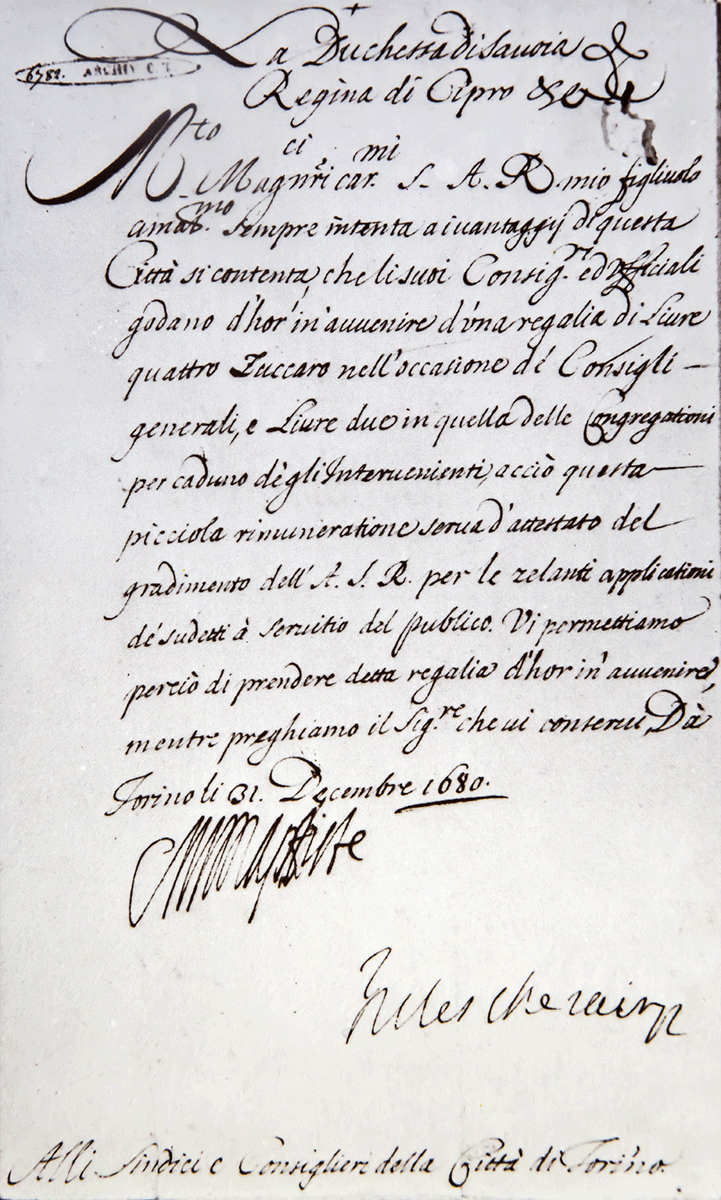 La Duchessa di Savoia &
6782. ARCHIV. C. T.
Regina di Cipro &c
M.to Mag.ci car.mi S. A. R. mio figliuolo
amat.mo sempre intenta a i vantaggij di questa
Città si contenta, che li suoi Consig.ri ed Ufficiali
godano d'hor' in' auuenire d'una regalia di Liure
quattro Zuccaro nell'occasione de' Consigli
generali, e Liure due in quella delle Congregationi
per caduno degli Interuenienti, acciò questa
picciola rimuneratione serua d'attestato del
gradimento dell' A. S. R. per le zelanti applicationi
de' sudetti à seruitio del publico. Vi permettiamo
perciò di prendere detta regalia d'hor in' auuenire,
mentre preghiamo il Sig.re che ui conserui, Dà
Torino li 31. Decembre 1680.
Alli Sindici e Consiglieri della Città di Torino.